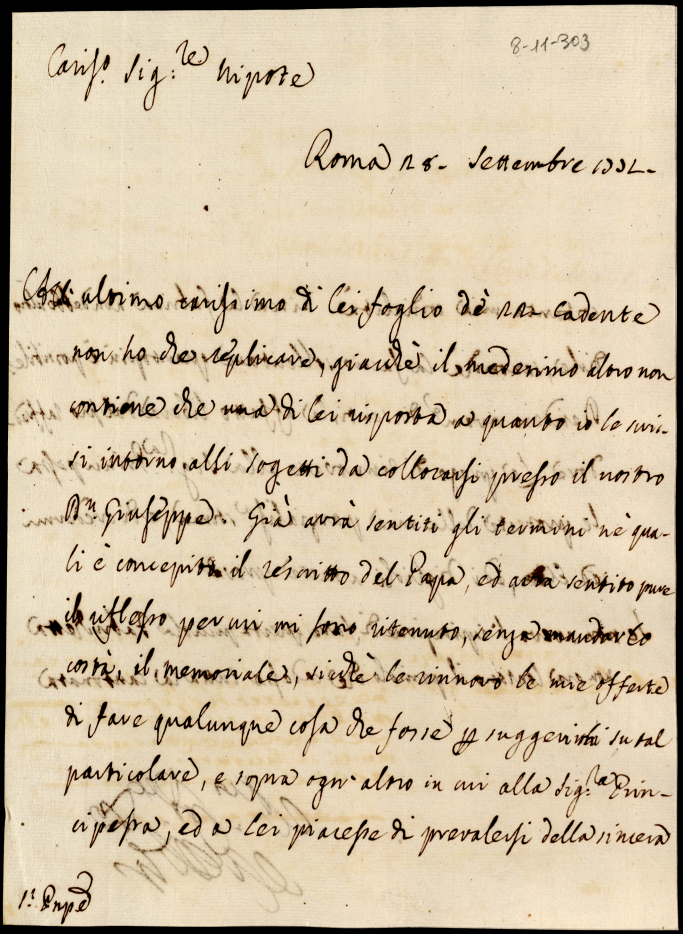 8-11-303
Cariss.o Sig:re Nipote
Roma 28. Settembre
All' ultimo carissimo di lei foglio de' 22. Cadente
non ho che replicare, giacchè il medesimo altro non
contiene che una di lei risposta a quanto io le scris-
si intorno alli sogetti da collocarsi presso il nostro
Bn Giuseppe. Già avrà sentiti gli termini nè qua-
li è concepito il rescritto del Papa, ed avrà sentito pure
il riflesso per cui mi sono ritenuto, senza mandarlo
costà, il memoriale, sicchè le rinnovo le mie offerte
di fare qualunque cosa che fosse p suggerirmi su tal
particolare, e sopra ogn' altro in cui alla Sig:ra Prin-
cipessa, ed a lei piacesse di prevalersi della sincera